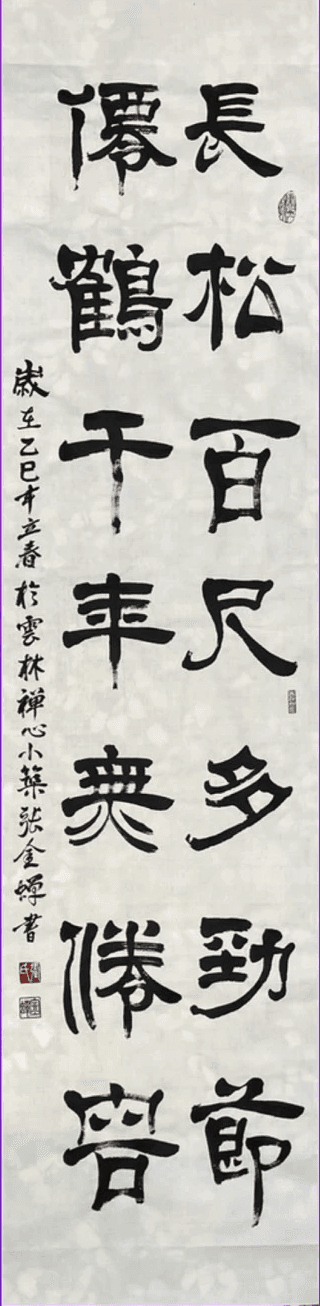 長松百尺多勁節
僊鶴千年無倦容
歲在乙巳年立春於雲林禅心小築張金蟬書